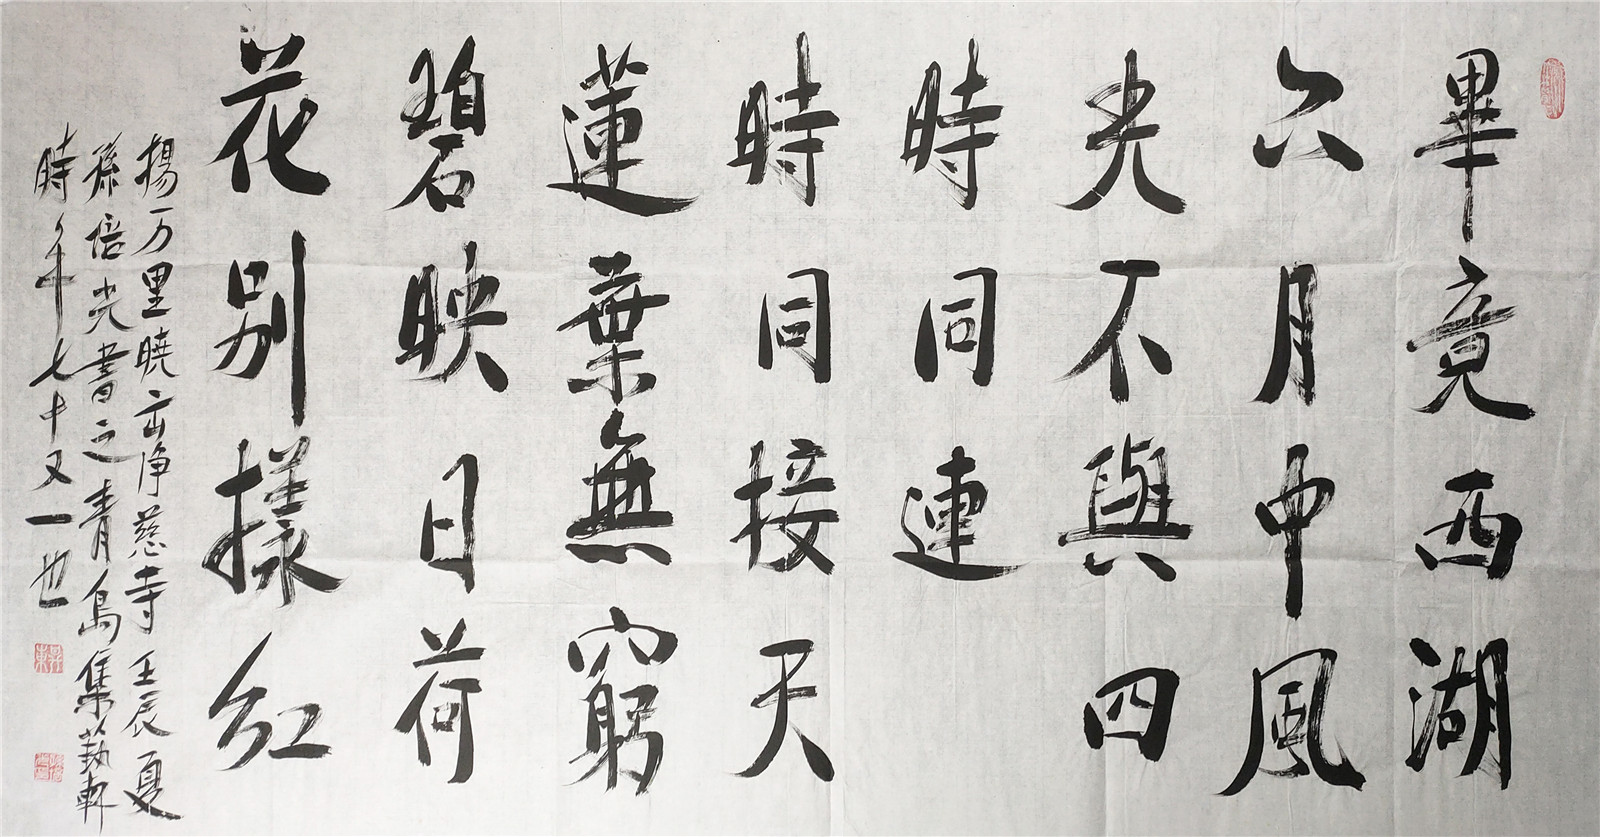 畢竟西湖
六月中風
光不與四
時同連
時同接天
蓮葉無窮
碧映日荷
花别樣紅
楊万里曉出净慈寺壬辰夏
孫培光書之青島集藝軒
時年七十又一也